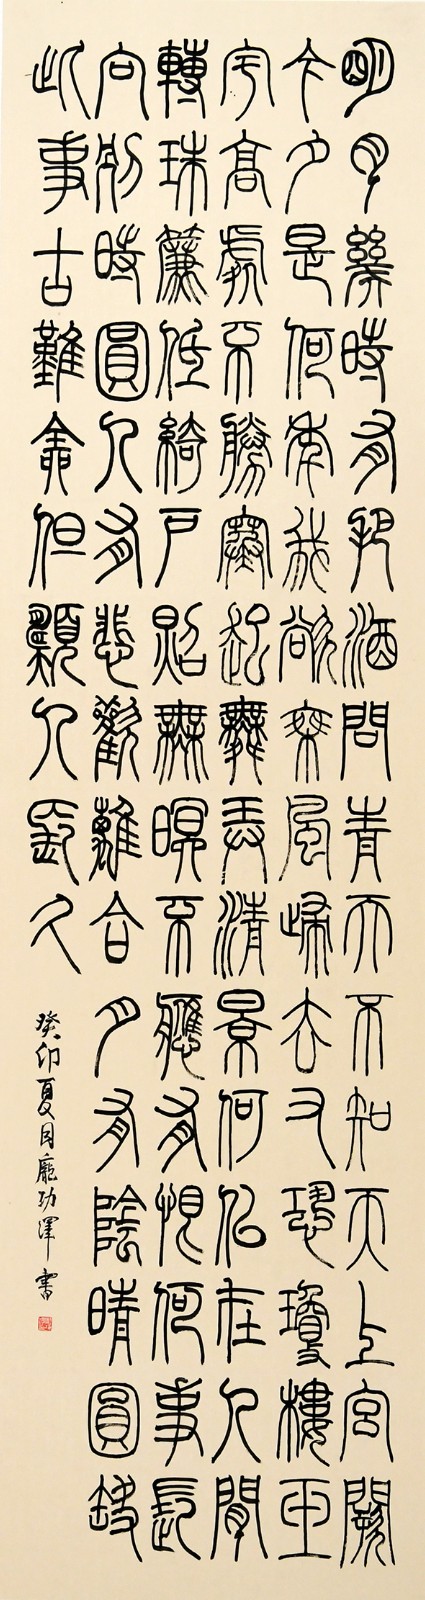 明月幾時有把酒問青天不知天上宮闕
今夕是何年我欲乘風歸去又恐瓊樓玉
宇高處不勝寒起舞弄清景何似在人間
轉珠簾低綺戶照無暝不應有恨何事長
向別時圓人有悲歡離合月有陰晴圓缺
此事古難全但願人長久
癸卯夏月龐功澤書